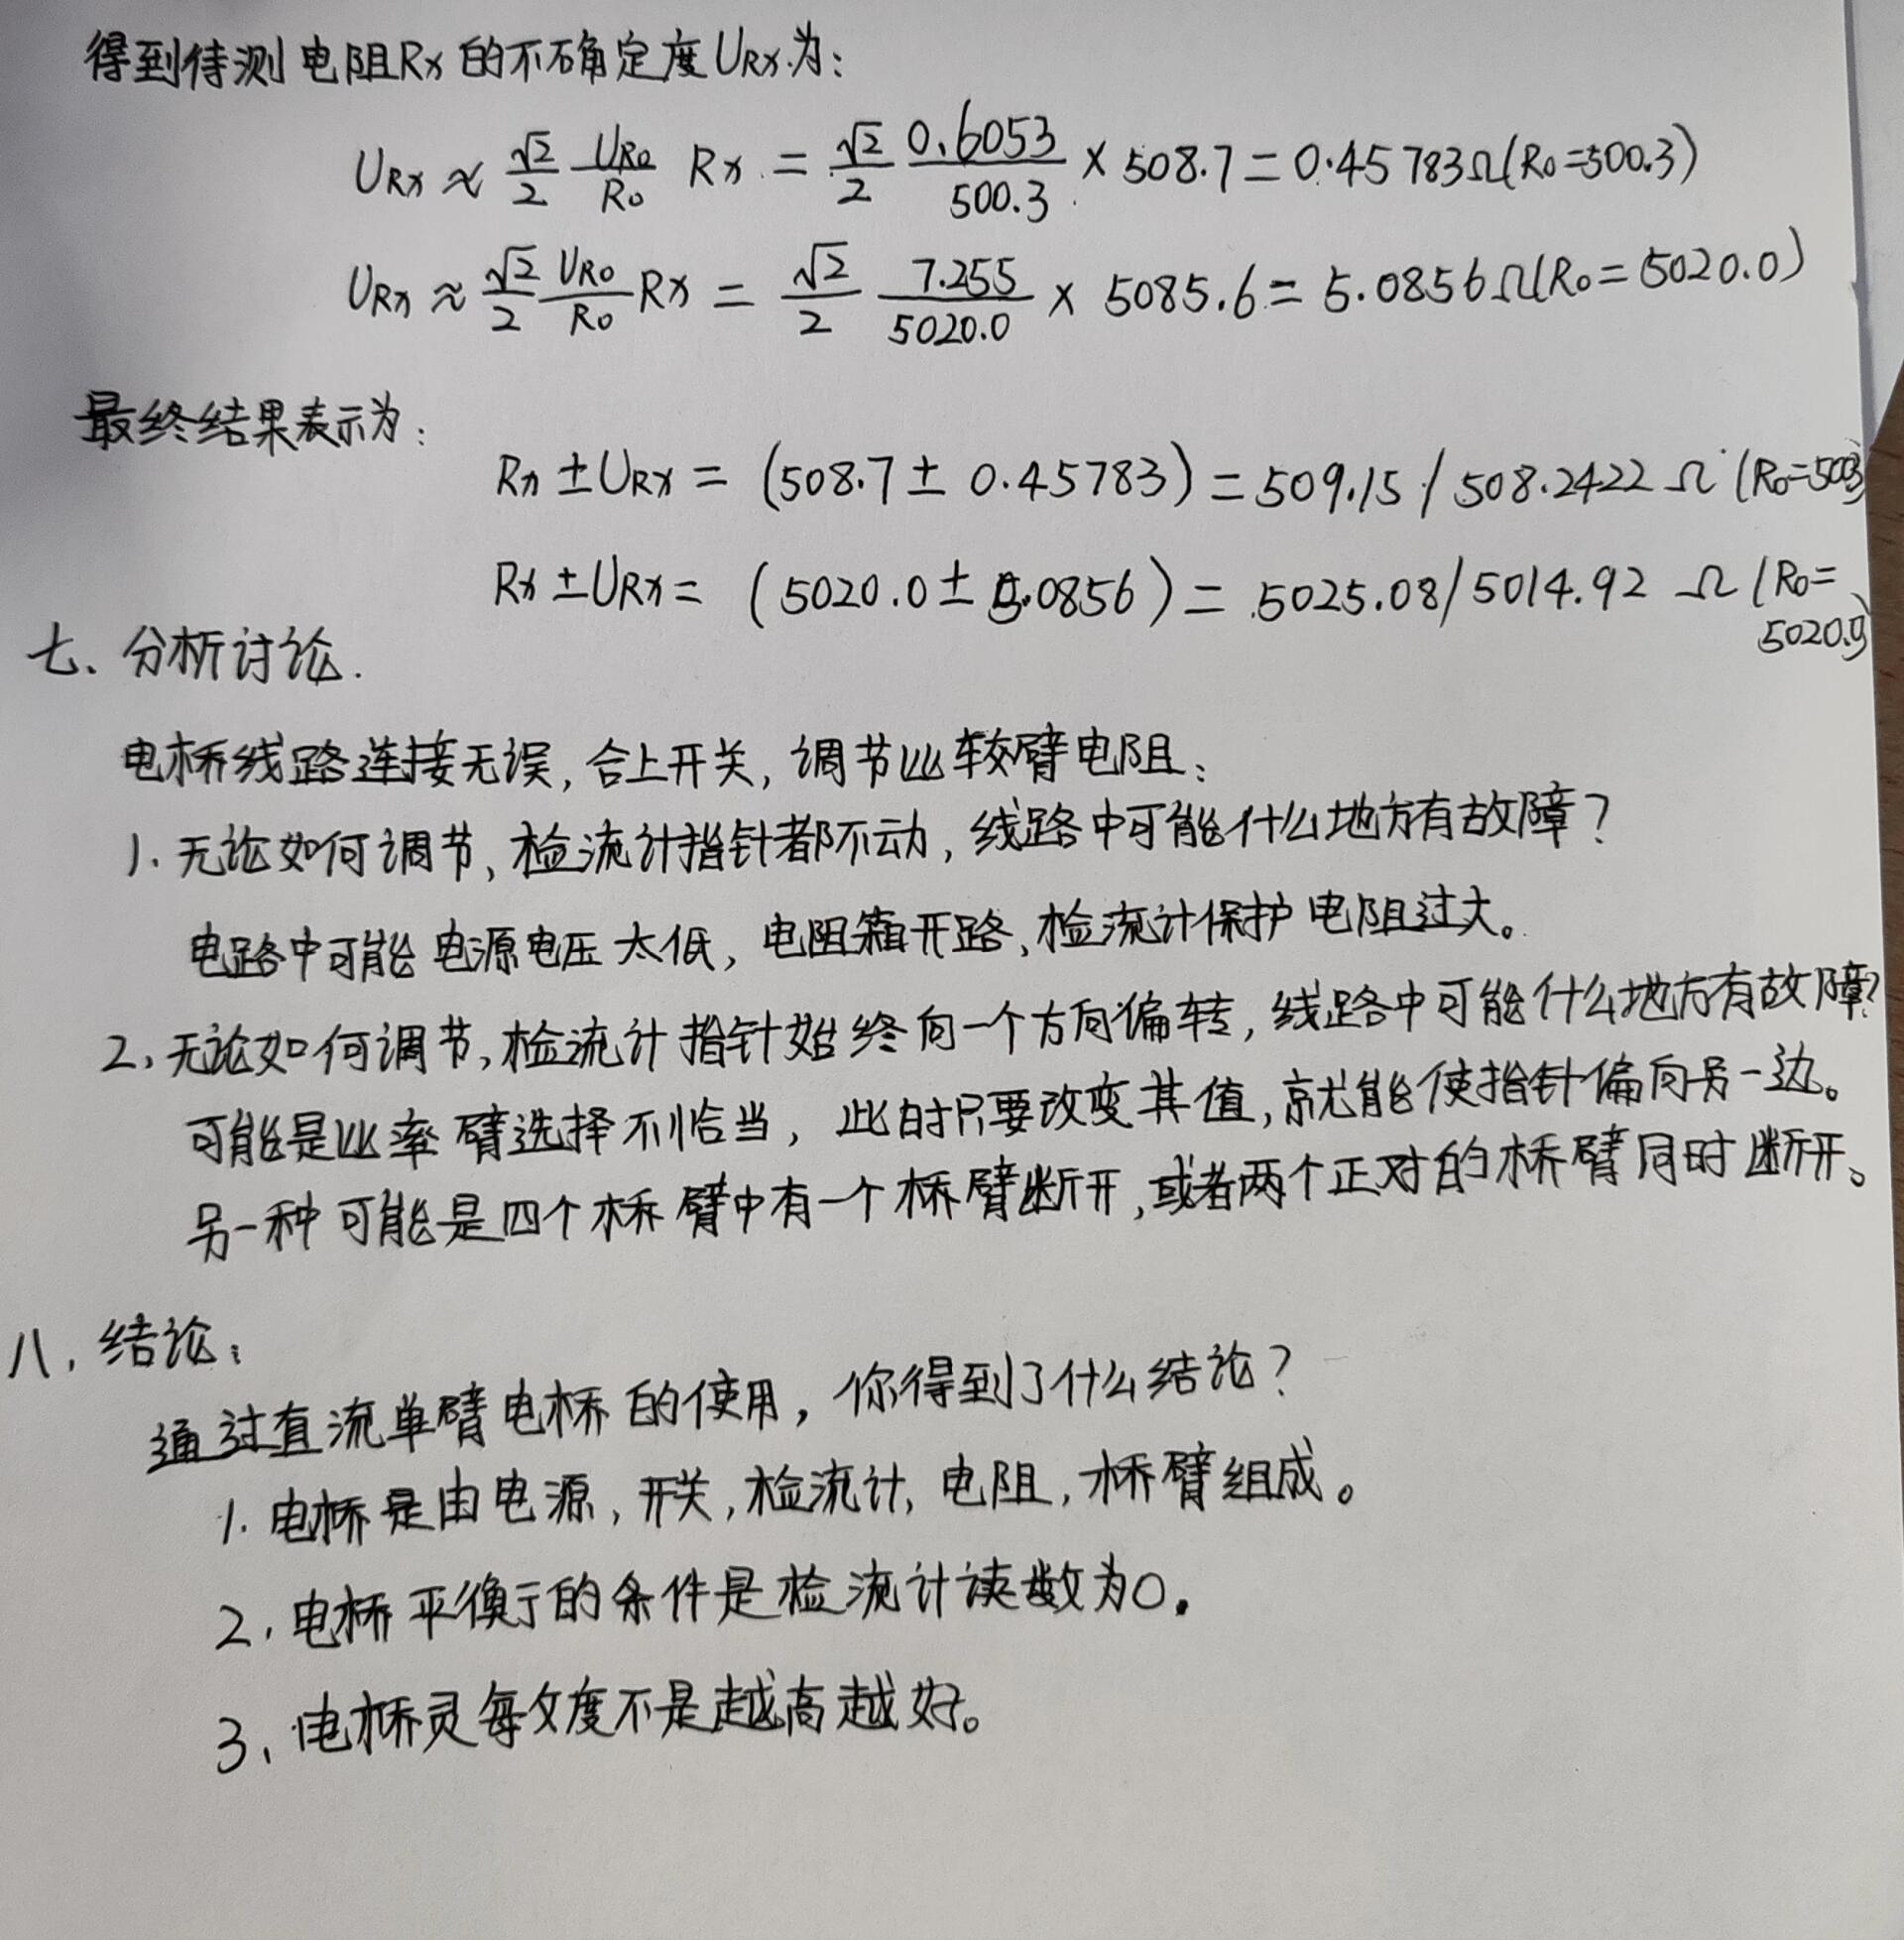 得到待测电阻Rx的不确定度URx为:
URx ≈ √2/2 URo/Ro Rx = √2/2 0.6053/500.3 × 508.7 = 0.45783Ω(Ro=500.3)
URx ≈ √2/2 URo/Ro Rx = √2/2 7.255/5020.0 × 5085.6 = 5.0856Ω(Ro=5020.0)
最终结果表示为:
Rx ± URx = (508.7 ± 0.45783) = 509.15 / 508.2422 Ω (Ro=500.3
Rx ± URx = (5020.0 ± 5.0856) = 5025.08/5014.92 Ω (Ro=
5020.0)
七、分析讨论.
电桥线路连接无误,合上开关,调节比较臂电阻:
1. 无论如何调节,检流计指针都不动,线路中可能什么地方有故障?
电路中可能电源电压太低,电阻箱开路,检流计保护电阻过大。
2,无论如何调节,检流计指针始终向一个方向偏转,线路中可能什么地方有故障?
可能是比率臂选择不恰当,此时只要改变其值,就能使指针偏向另一边。
另一种可能是四个桥臂中有一个桥臂断开,或者两个正对的桥臂同时断开。
八,结论:
通过直流单臂电桥的使用,你得到了什么结论?
1. 电桥是由电源,开关,检流计,电阻,桥臂组成。
2,电桥平衡的条件是检流计读数为0。
3、电桥灵敏度不是越高越好。